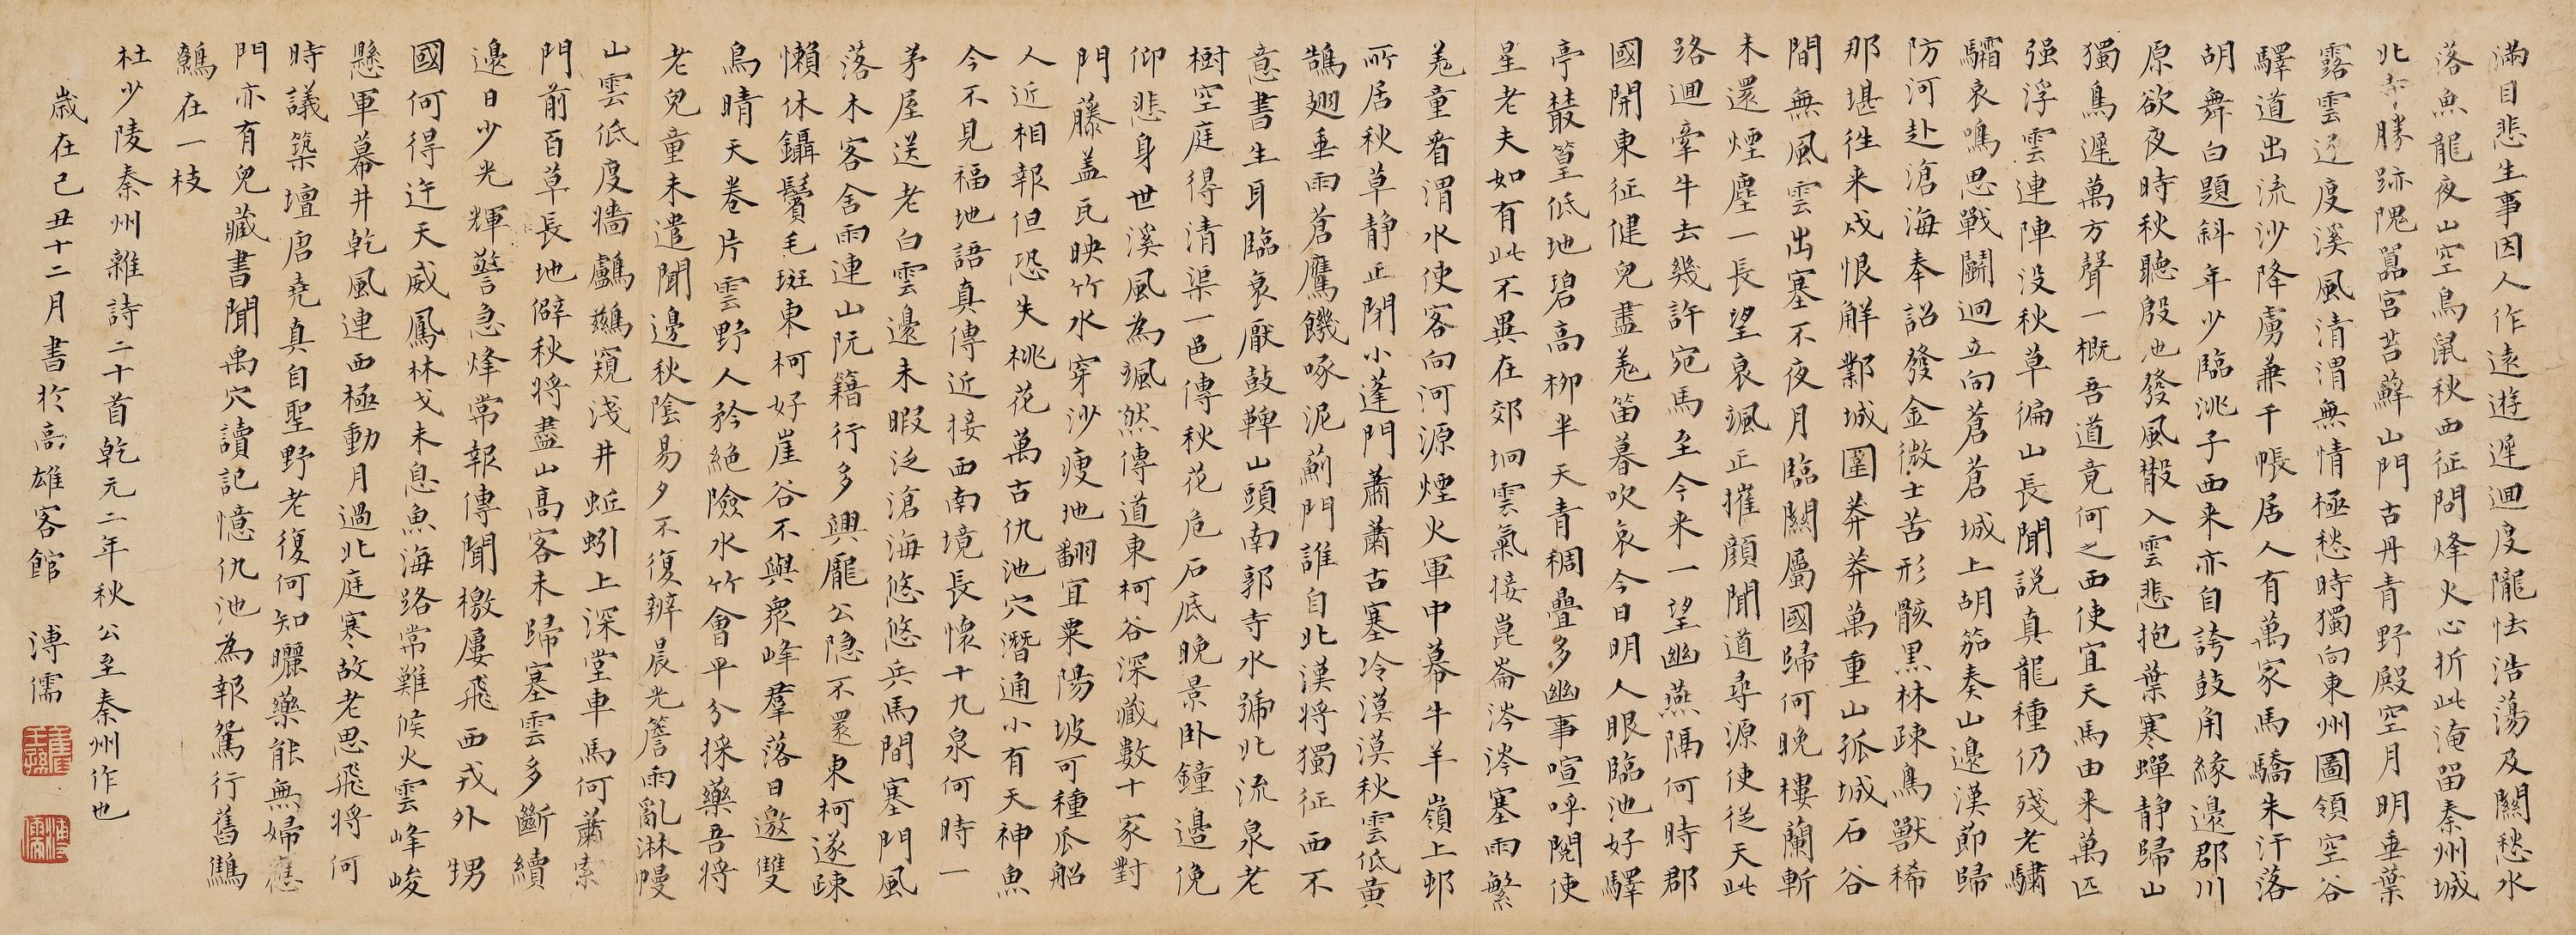 滿目悲生事因人作遠遊遲迴度隴怯浩蕩及關愁水
落魚龍夜山空鳥鼠秋西征問烽火心折此淹留秦州城
北寺勝跡隗囂宮苔蘚山門古丹青野殿空月明垂葉
露雲逐度溪風清渭無情極愁時獨向東州圖領空谷
驛道出流沙降虜兼千帳居人有萬家馬驕朱汗落
胡舞白題斜年少臨洮子西来亦自誇鼓角緣邊郡川
原欲夜時秋聽殷地發風散入雲悲抱葉寒蟬静歸山
獨鳥遲萬方聲一概吾道竟何之西使宜天馬由来萬匹
强浮雲連陣没秋草徧山長聞説真龍種仍殘老驌
驦哀鳴思戰鬭迴立向蒼蒼城上胡笳奏山邊漢節歸
防河赴滄海奉詔發金微士苦形骸黑林踈鳥獸稀
那堪徃来戍恨解鄴城圍莽莽萬重山孤城石谷
間無風雲出塞不夜月臨關屬國歸何晚樓蘭斬
未還煙塵一長望衰颯正摧顔聞道尋源使従天此
路迴牽牛去幾許宛馬至今来一望幽燕隔何時郡
國開東征健兒盡羌笛暮吹哀今日明人眼臨池好驛
亭叢篁低地碧高柳半天青稠疊多幽事喧呼閲使
星老夫如有此不異在郊坰雲氣接崑崙涔涔塞雨繁
羌童看渭水使客向河源煙火軍中幕牛羊嶺上邨
所居秋草静正閉小蓬門蕭蕭古塞冷漠漠秋雲低黄
鵠翅垂雨蒼鷹饑啄泥薊門誰自北漢将獨征西不
意書生耳臨衰厭鼓鞞山頭南郭寺水號北流泉老
樹空庭得清渠一邑傳秋花危石底晚景卧鐘邊俛
仰悲身世溪風為颯然傳道東柯谷深藏數十家對
門藤盖瓦映竹水穿沙瘦地翻宜粟陽坡可種瓜船
人近相報但恐失桃花萬古仇池穴潛通小有天神魚
今不見福地語真傳近接西南境長懷十九泉何時一
茅屋送老白雲邊未暇泛滄海悠悠兵馬間塞門風
落木客舍雨連山阮籍行多興龐公隐不還東柯遂踈
懶休鑷鬢毛斑東柯好崖谷不與衆峰羣落日邀雙
鳥晴天卷片雲野人矜絶險水竹會平分採藥吾将
老兒童未遣聞邊秋陰易夕不復辨晨光簷雨亂淋幔
山雲低度牆鸕鷀窺淺井蚯蚓上深堂車馬何蕭索
門前百草長地僻秋将盡山高客未歸塞雲多斷續
邊日少光輝警急烽常報傳聞檄屢飛西戎外甥
國何得迕天威鳳林戈未息魚海路常難候火雲峰峻
懸軍幕井乾風連西極動月過北庭寒故老思飛将何
時議築壇唐堯真自聖野老復何知曬藥能無婦應
門亦有兒藏書聞禹穴讀記憶仇池為報鴛行舊鷦
鷯在一枝
杜少陵秦州雜詩二十首乾元二年秋公至秦州作也
歲在己丑十二月書於高雄客館 溥儒
舊王孫
溥儒